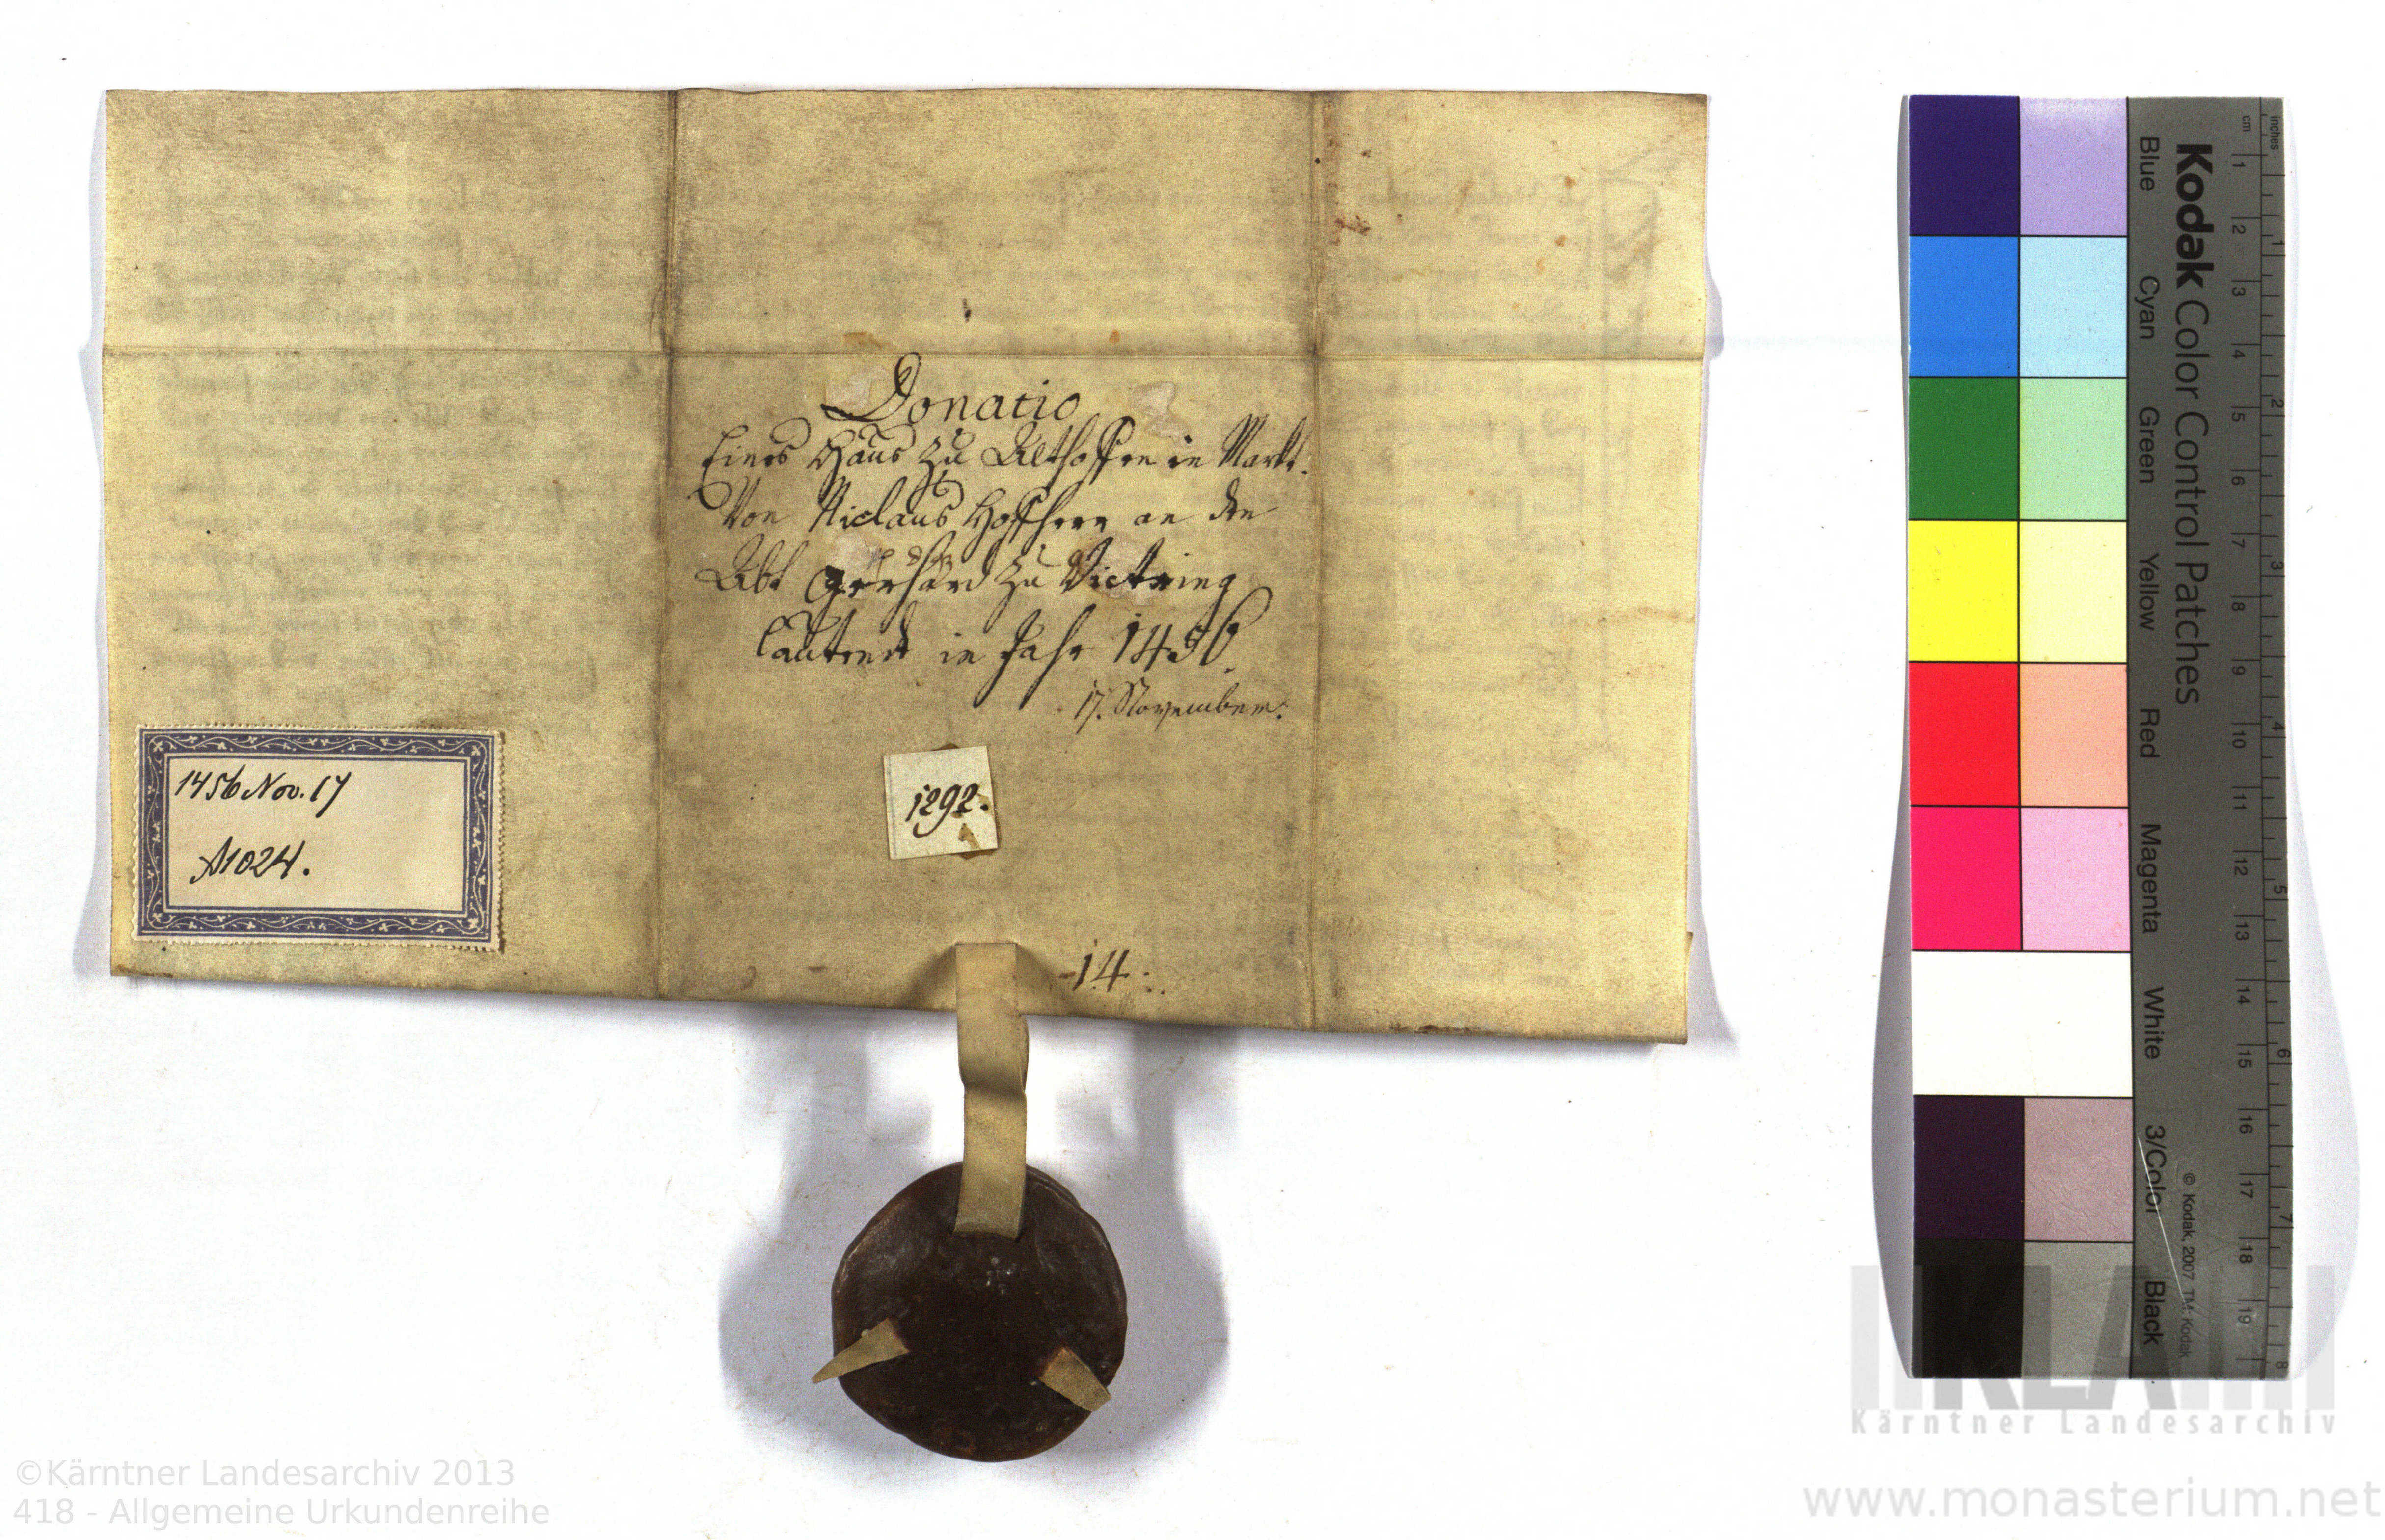 Donatio
Eines Haus zu Althoffen in Markt.
Von Niclaus Hoffherr an den
Abt gerhard zu Victring
lautend in Jahr 1456.
17. November.
1456 Nov. 17
A1024.
1292.
14.
Kodak Color Control Patches
Blue Cyan Green Yellow Red Magenta White 3/Color Black
© Kodak, 2007 TM: Kodak
cm 1 2 3 4 5 6 7 8 9 10 11 12 13 14 15 16 17 18 19
inches 1 2 3 4 5 6 7 8
KLA
Kärntner Landesarchiv
©Kärntner Landesarchiv 2013
418 - Allgemeine Urkundenreihe
www.monasterium.net